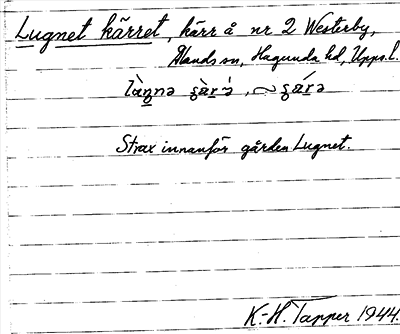 Lugnet kärret, kärr å nr 2 Westerby,
sn, Hagunda hd, Upps.l.
Strax innanför gården Lugnet.
K-H. Tapper 1944.